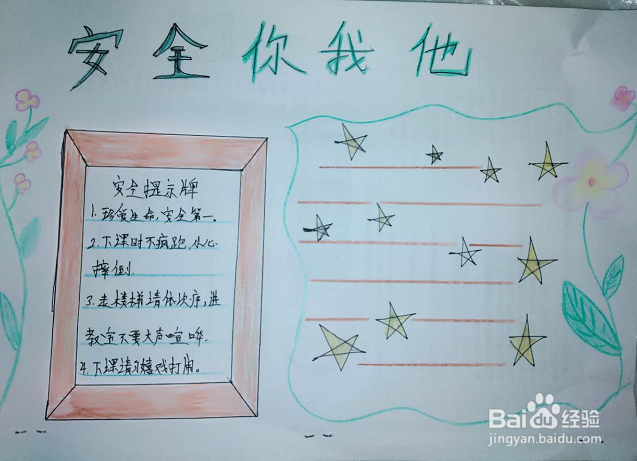 安全你我他
安全提示牌
1.珍爱生命,安全第一。
2.下课时不疯跑,小心
摔倒.
3.走楼梯请依次序,进
教室不要大声喧哗.
4.下课请勿嬉戏打闹。
Bai du 经验
jingyan.baidu.com